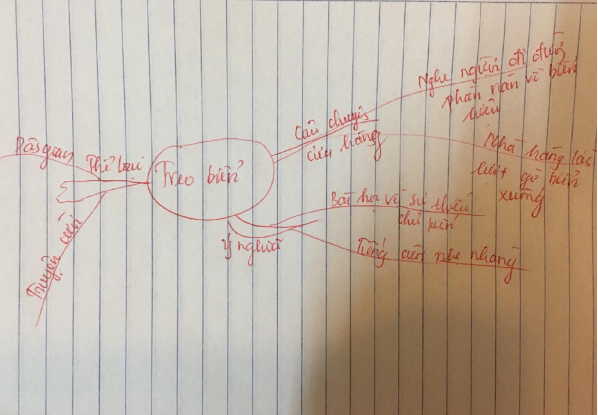 Treo biển
Thể loại
Dân gian
Truyện cười
Câu chuyện
cửa hàng
Nghe người đi đường
phàn nàn về biển
hiệu
Nhà hàng lần
lượt gỡ biển
xuống
Ý nghĩa
Bài học về sự thiếu
chủ kiến
Tiếng cười nhẹ nhàng